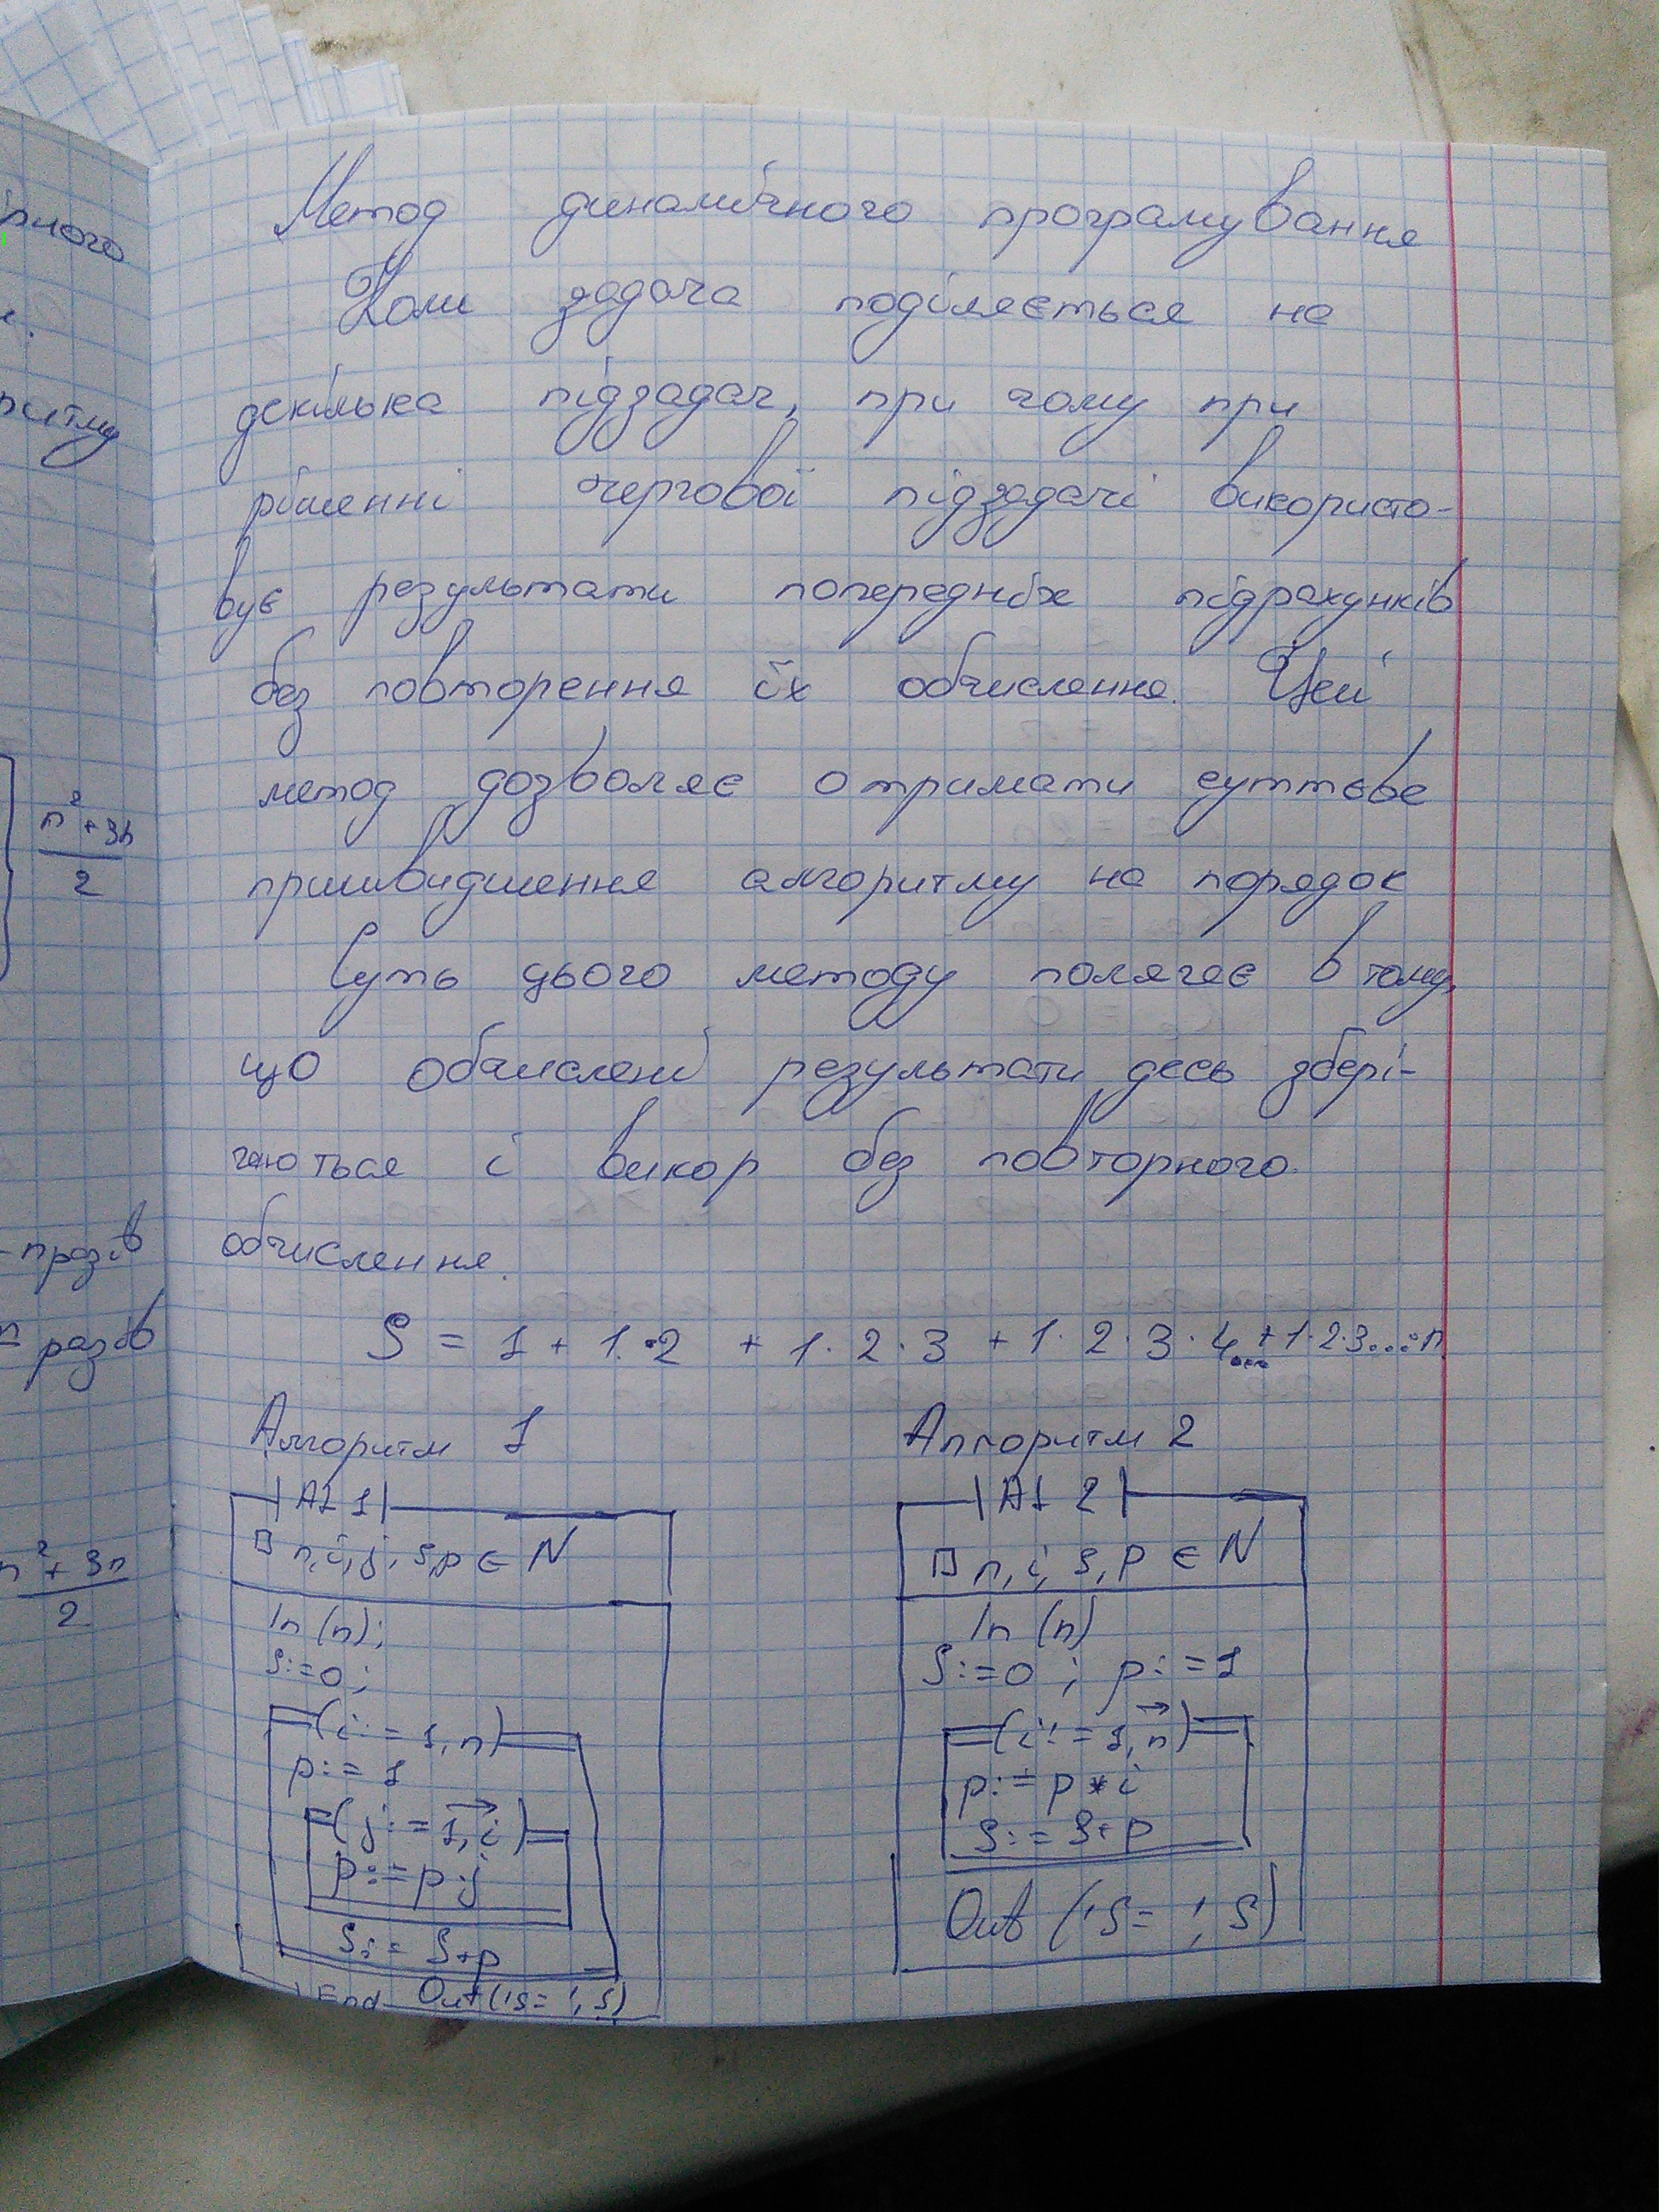 рного
ритму
n² + 3n
2
n разів
n разів
n² + 3n
2
Метод динамічного програмування
Коли задача поділяється на
декілька підзадач, при чому при
рішенні чергової підзадачі використо-
вує результати попередніх підрахунків
без повторення їх обчислення. Цей
метод дозволяє отримати суттєве
пришвидшення алгоритму на порядок
Суть цього методу полягає в тому,
що обчислені результати десь збері-
гаються і викор без повторного
обчислення.
S = 1 + 1·2 + 1·2·3 + 1·2·3·4...+1·2·3...·n
Алгоритм 1
Al 1
n, i, j, s, p ∈ N
In (n);
S:=0;
(i:=1,n)
p:=1
(j:=1,i)
p:=p·j
S:=S+p
End Out('S= ', S)
Алгоритм 2
Al 2
n, i, S, P ∈ N
In (n)
S:=0; p:=1
(i:=1,n)
p:=p*i
S:=S+p
Out ('S= ', S)